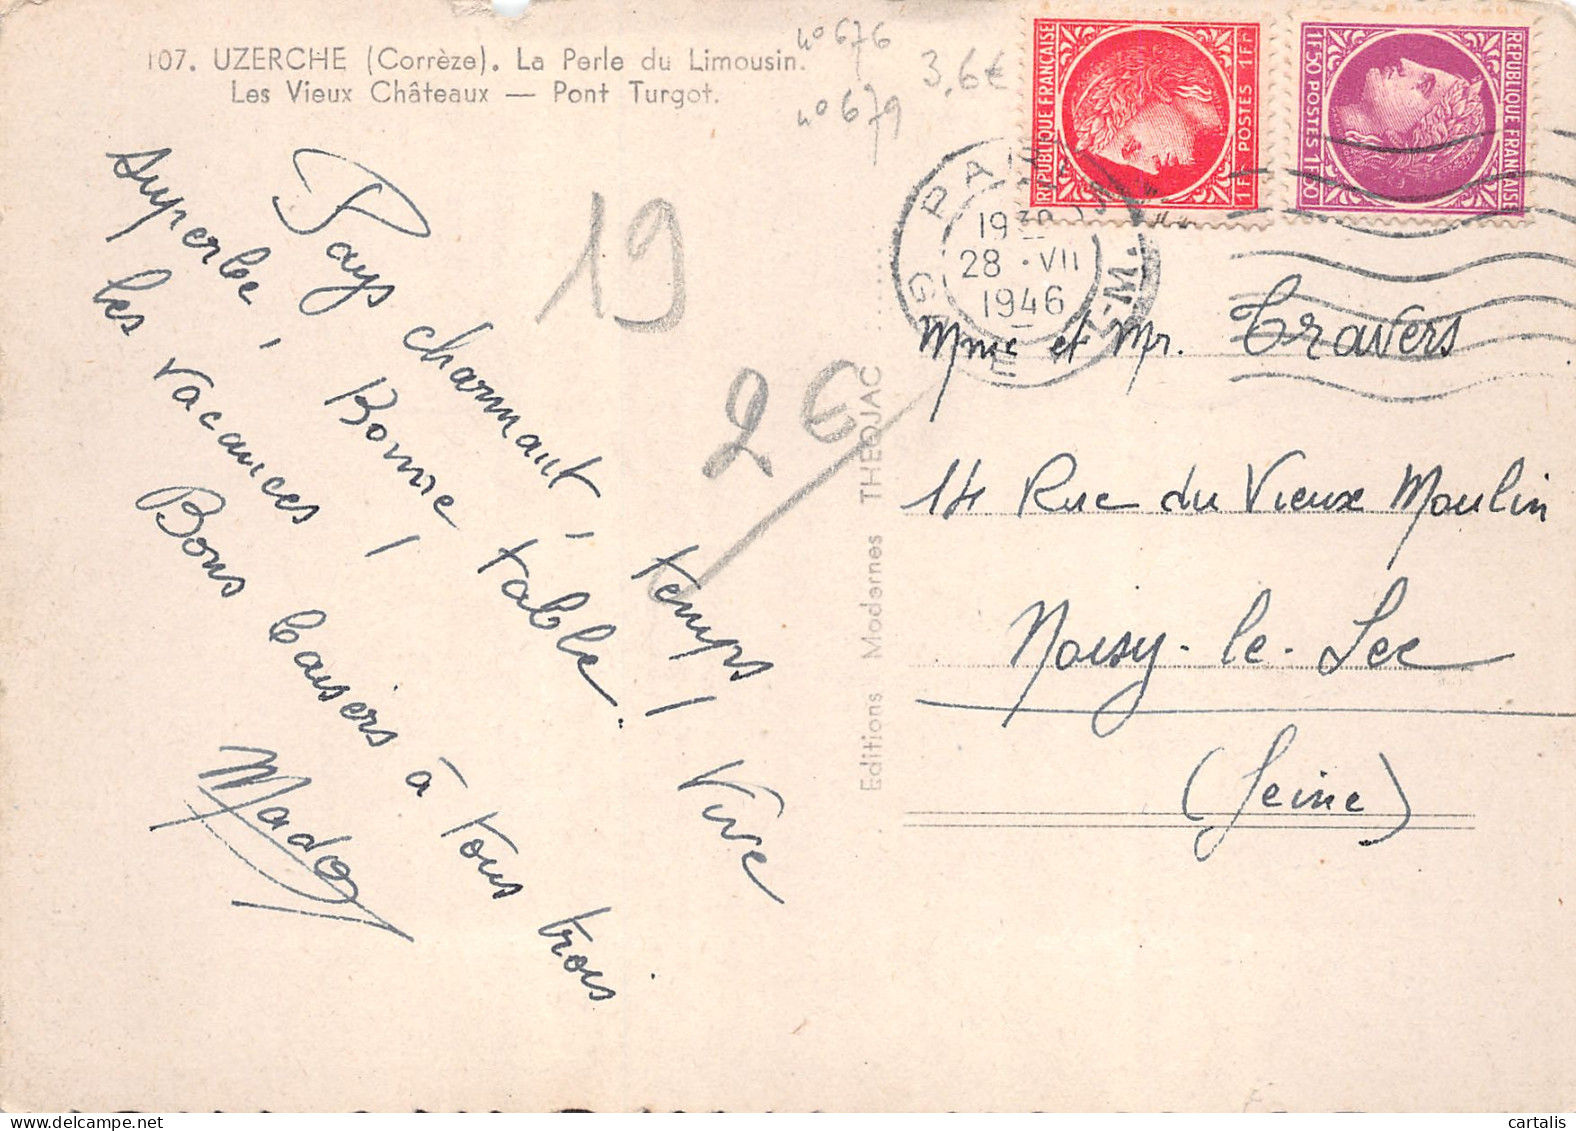 107. UZERCHE (Corrèze). La Perle du Limousin.
Les Vieux Châteaux — Pont Turgot.
n° 676
n° 679
3,6€
RÉPUBLIQUE FRANÇAISE
1 FR POSTES 1 FR
1F50 POSTES 1F50
RÉPUBLIQUE FRANÇAISE
28 · VII
1946
19
2€
Pays charmant, temps
superbe, Bonne table! Vive
les vacances!
Bons baisers à tous trois
Mado
Editions Modernes THEOJAC
Mme et Mr. Travers
14 Rue du Vieux Moulin
Noisy-le-Sec
(Seine)
cartalis